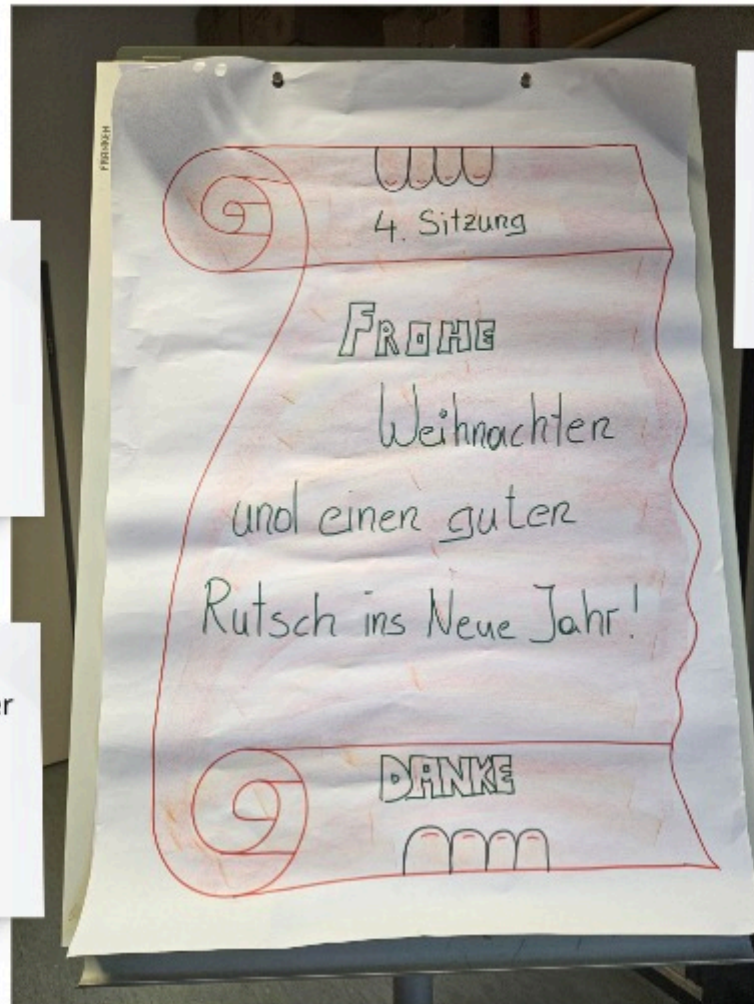 FRANKEN
4. Sitzung
FROHE
Weihnachten
und einen guten
Rutsch ins Neue Jahr!
DANKE